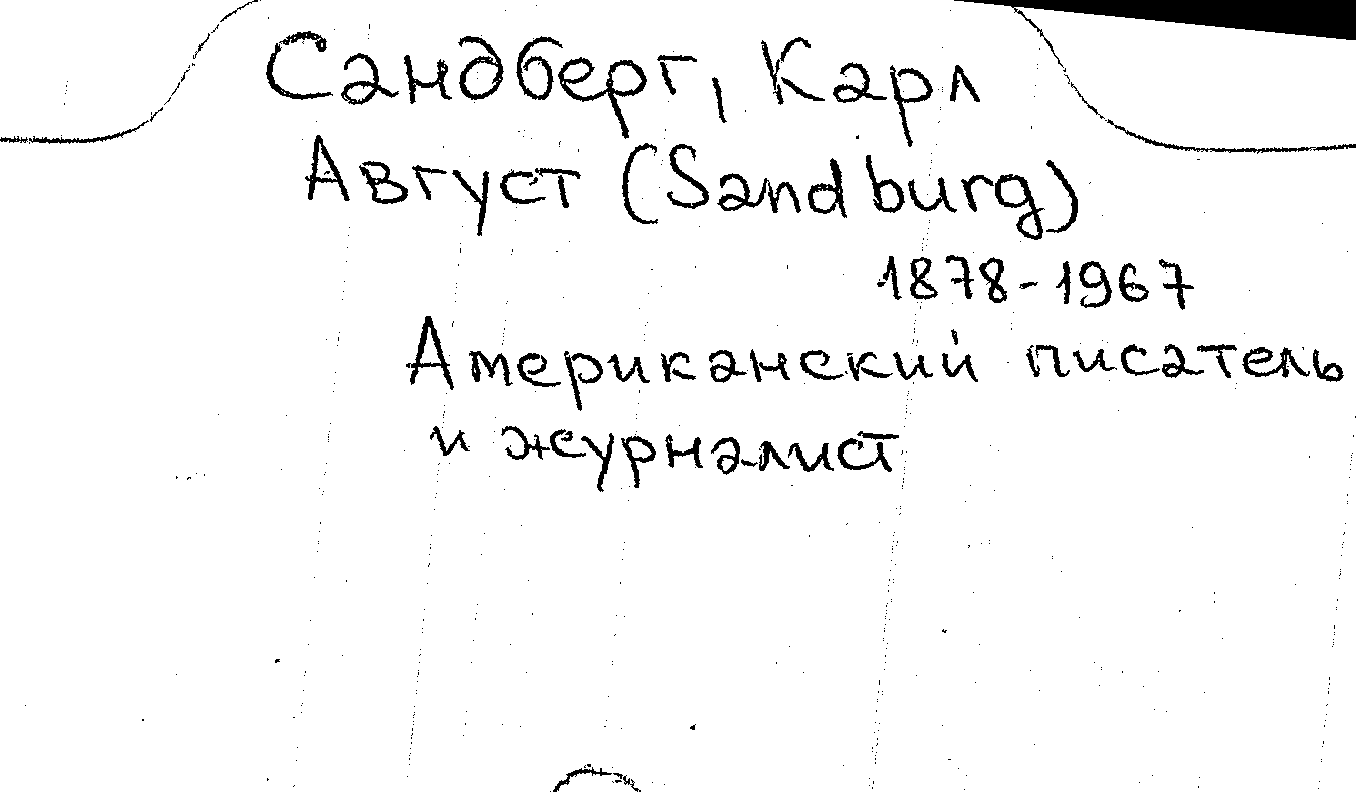 Сандберг, Карл
Август (Sandburg)
1878-1967
Американский писатель
и журналист